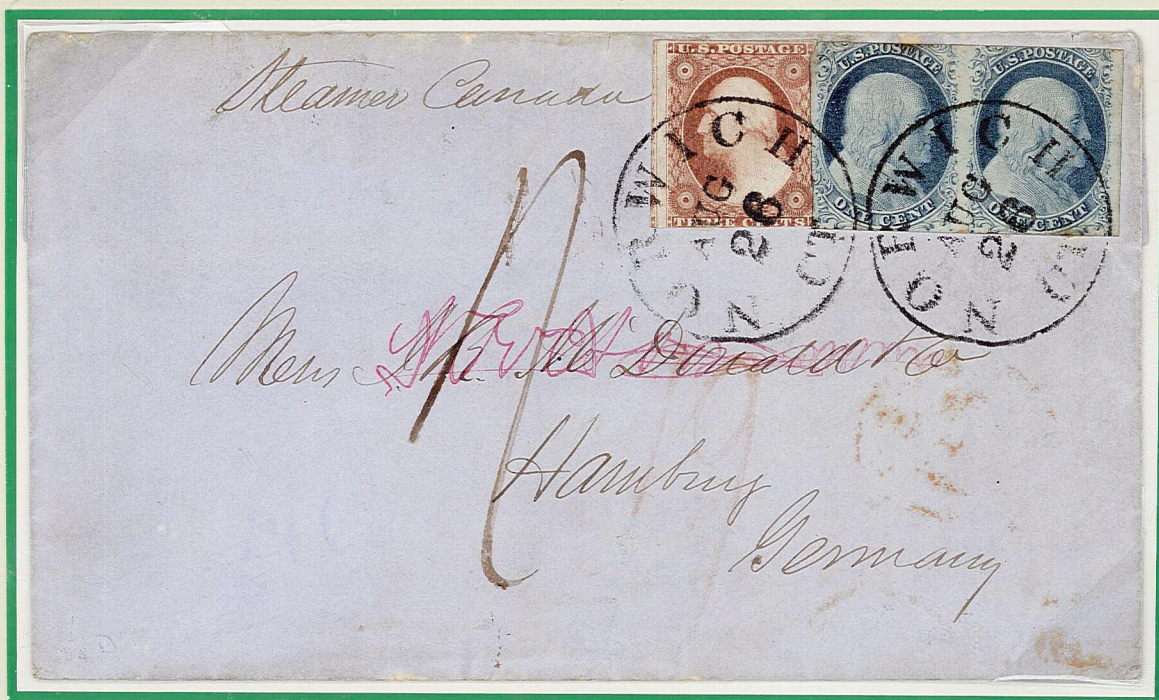 Steamer Canada
U.S. POSTAGE
THREE CENTS
U.S. POSTAGE
ONE CENT
U.S. POSTAGE
ONE CENT
NORWICH CT
AUG
26
NORWICH CT
AUG
26
Donald & Co
Hamburg
Germany